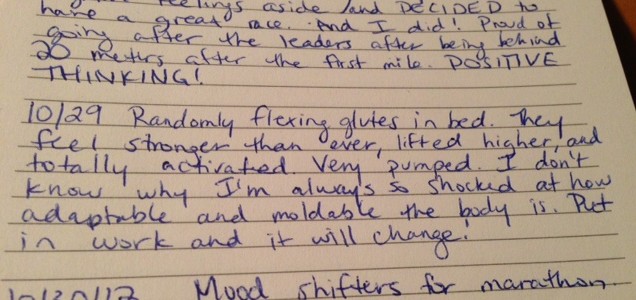 feelings aside and DECIDED to
have a great race. And I did! Proud of
going after the leaders after being behind
20 meters after the first mile. POSITIVE
THINKING!
10/29 Randomly flexing glutes in bed. They
feel stronger than ever, lifted higher, and
totally activated. Very pumped. I don't
know why I'm always so shocked at how
adaptable and moldable the body is. Put
in work and it will change!
10/30/12 Mood shifters for marathon